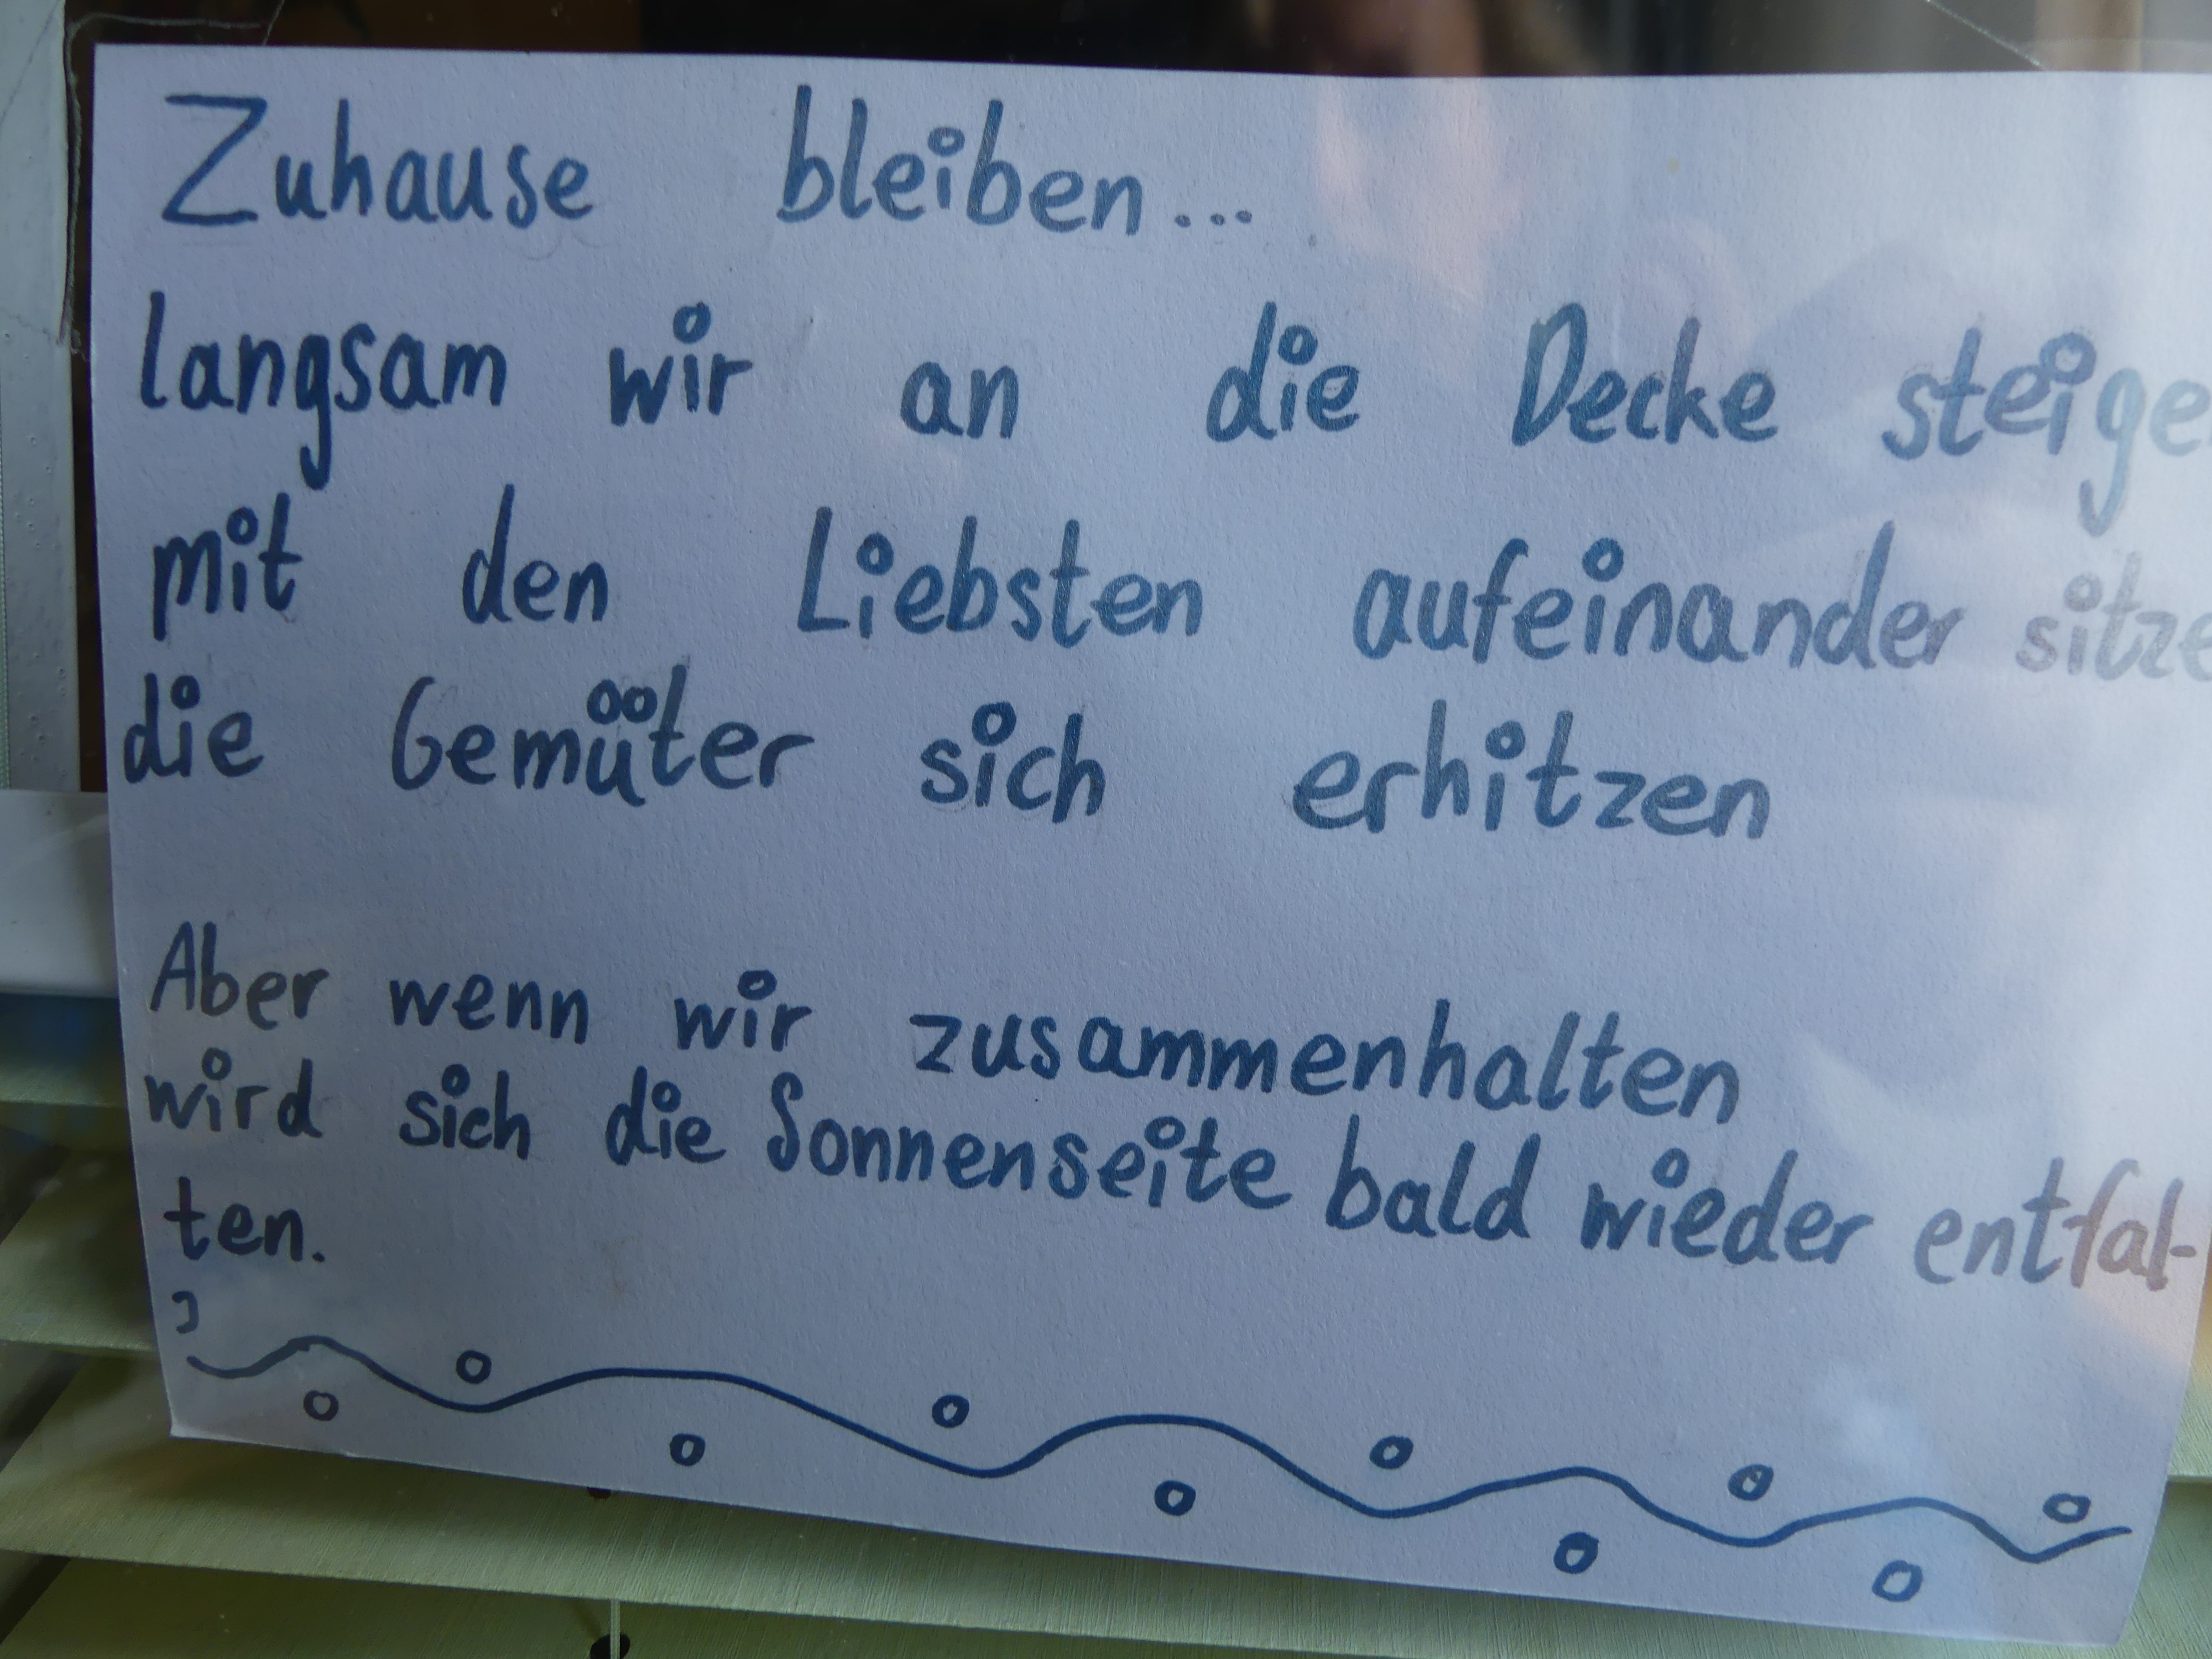 Zuhause bleiben...
langsam wir an die Decke steige
mit den Liebsten aufeinander sitze
die Gemüter sich erhitzen
Aber wenn wir zusammenhalten
wird sich die Sonnenseite bald wieder entfal-
ten.